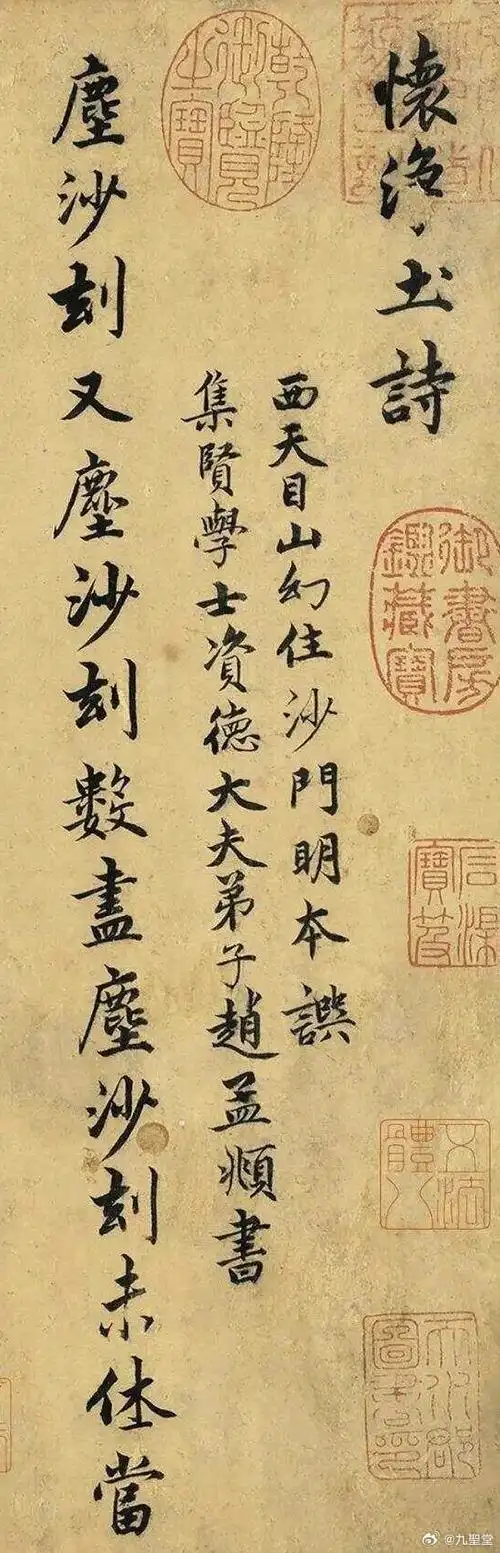 懷淨土詩
御書房鑑藏寶
石渠寶笈
天水郡圖書印
乾隆御覽之寶
西天目山幻住沙門明本譔
集賢學士資德大夫弟子趙孟頫書
塵沙刻又塵沙刻數盡塵沙刻未休當
@九聖堂